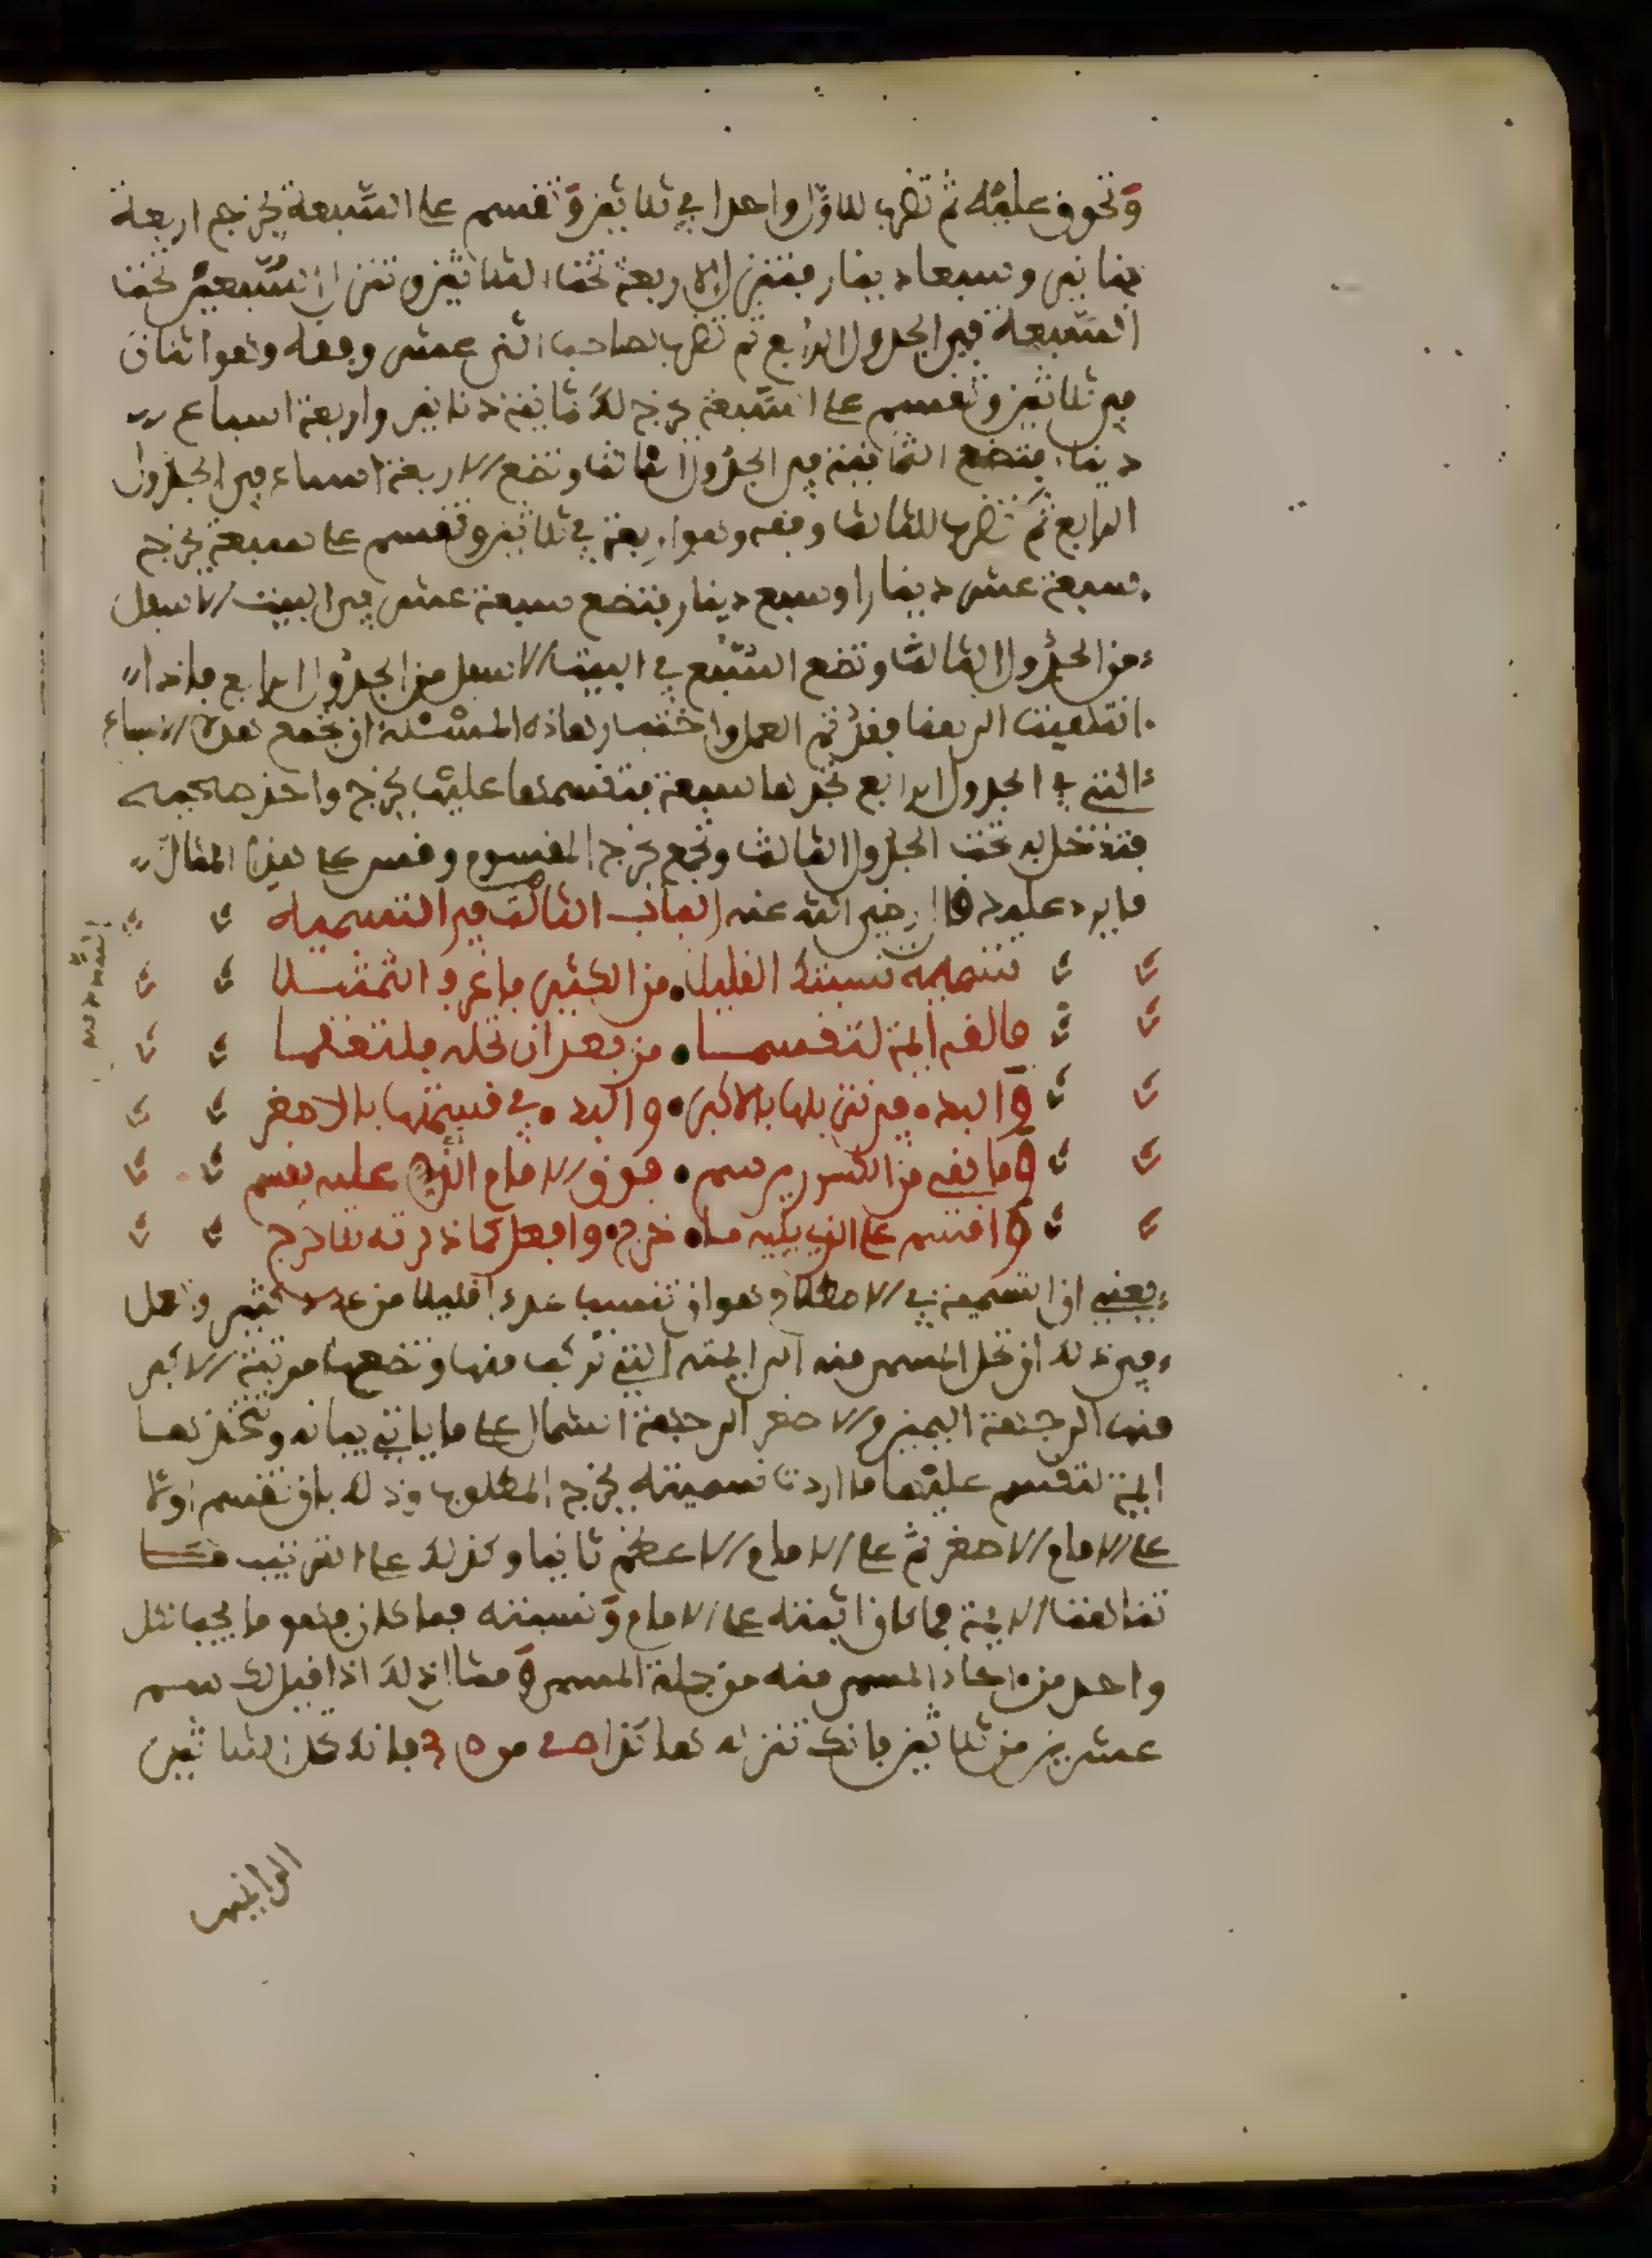 وتحوق عليه ثم تضرب للاول واحدا في ثلاثين وتقسم على السبعة يخرج اربعة
دنانير وسبعا دينار فتنزل الاربعة تحت الثلاثين وتنزل السبعين تحت
السبعة في الجدول الرابع ثم تضرب لصاحب اثنى عشر وفقه وهو اثنان
في ثلاثين وتقسم على السبعة يخرج لك ثمانية دنانير واربعة اسباع
دينار فتضع الثمانية في الجدول الثالث وتضع الاربعة اسباع في الجدول
الرابع ثم تضرب للثالث وفقه وهو اربعة في ثلاثين وتقسم على سبعة يخرج
سبعة عشر دينارا وسبع دينار فتضع سبعة عشر في البيت الاسفل
من الجدول الثالث وتضع السبع في البيت الاسفل من الجدول الرابع فاذا
انتهيت الى هنا فقد تم العمل واختبار هاذه المسئلة ان تجمع هذه الاسباع
التي في الجدول الرابع تجدها سبعة فتقسمها عليها يخرج واحد صحيح
فتدخل به تحت الجدول الثالث وتجمع يخرج المقسوم وقس على هذا المثال
ما يرد عليك قال رضي الله عنه الباب الثالث في التسمية
تسمية نسبتك القليلا من الكثير فاعرف التمثيلا
فالقه ايمة لتقسما من بعد ان تحله فلتفهما
وابدء في تنزيلها بالاكبر وابدء في قسمتها بالاصغر
وما بقي من الكسور يرسم فوق الامام الذي عليه يقسم
واقسم على الذي يليه ما خرج وافعل كما ذكرته بلا حرج
يعني ان التسمية في الاصطلاح هو ان تنسب عددا قليلا من عدد كثير والعمل
في ذلك ان تحل المسمى منه الى ايمته التي تركب منها وتضعها مرتبة الاكبر
منها الى جهة اليمين والاصغر الى جهة الشمال على ما ياتي بيانه وتتخذها
ايمة لتقسم عليها ما اردت تسميته يخرج المطلوب وذلك بان تقسم اولا
على الامام الاصغر ثم على الامام الاعظم ثانيا وكذلك على الترتيب
تنا الايمة فما كان اثبته على الامام ونسبته فما كان فهو ما يجب لكل
واحد من احاد المسمى منه من جملة المسمى ومثال ذلك اذا قيل لك سم
عشرين من ثلاثين فانك تنزله هاكذا من فانك تحل الثلاثين
الى ايمتها